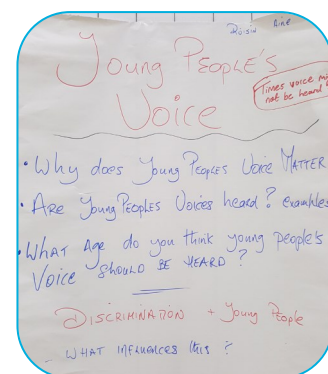 Róisín Áine
Young People's
Voice
Times voice may
not be heard
• Why does Young Peoples Voice MATTER
• Are Young Peoples Voices heard? examples
• What Age do you think young people's
Voice SHOULD BE HEARD?
DISCRIMINATION + Young People
- WHAT INFLUENCES this?